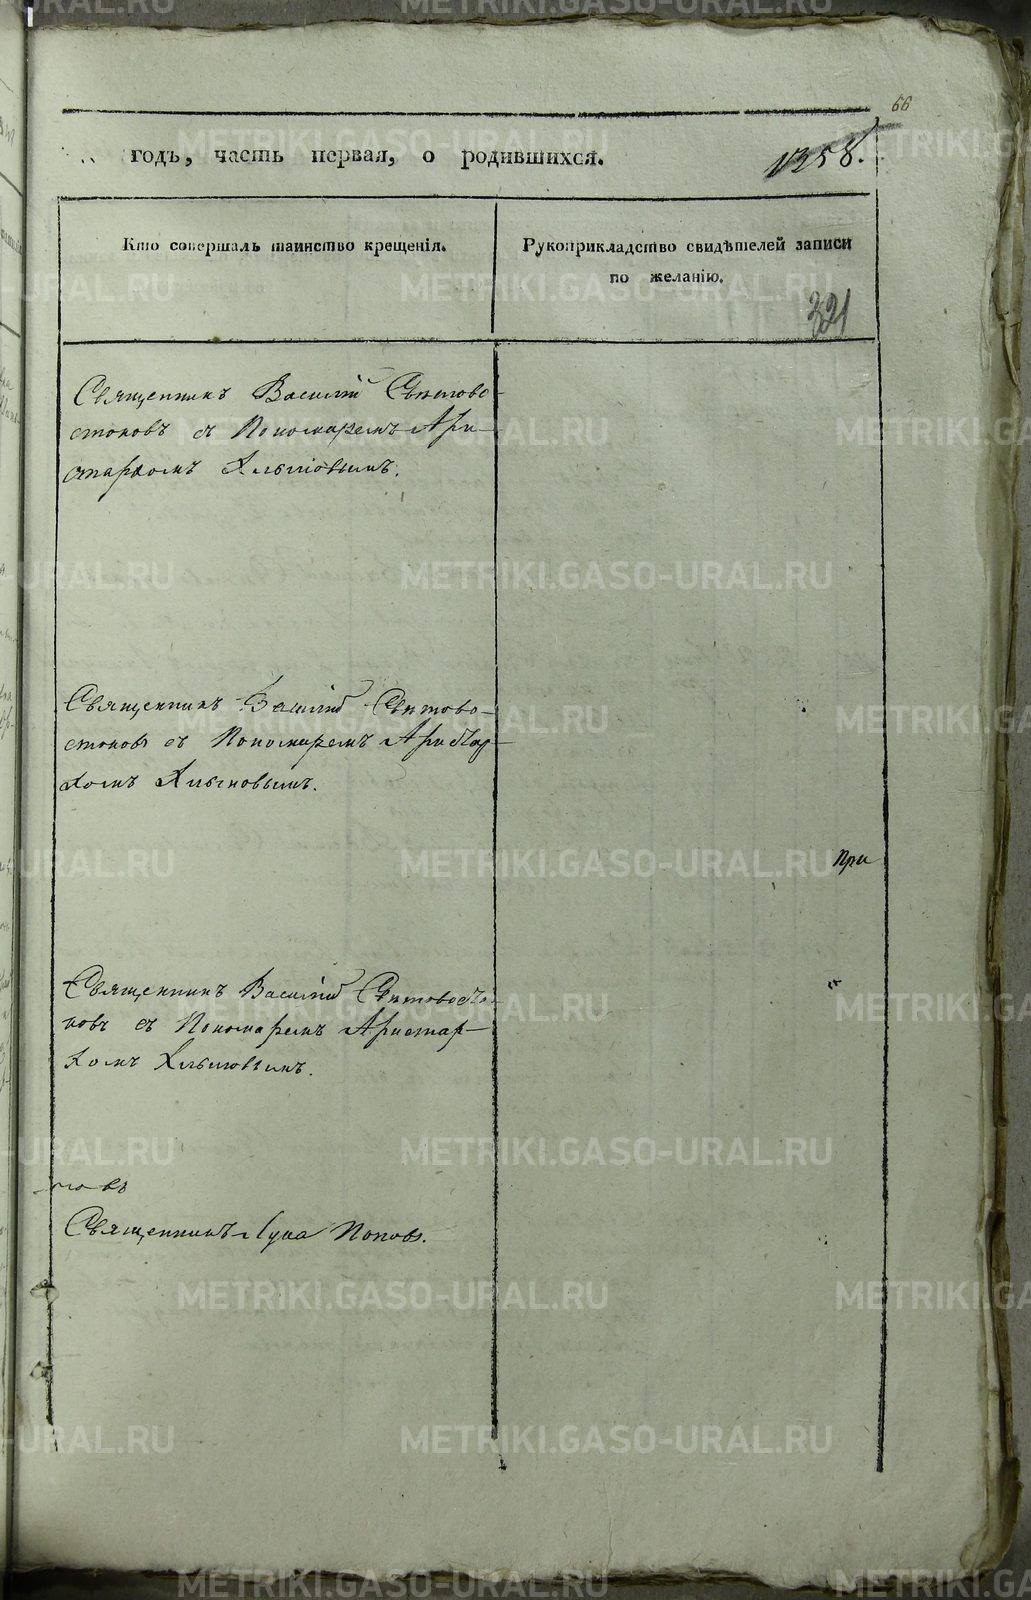 66
годъ, часть первая, о родившихся.
1358.
Кто совершалъ таинство крещенія.
Рукоприкладство свидѣтелей записи
по желанію.
321
Священникъ Василій Свѣтово-
стоковъ съ Пономаремъ Ари-
стархомъ Хлыновымъ.
Священникъ Василій Свѣтово-
стоковъ съ Пономаремъ Аристар-
хомъ Хлыновымъ.
При
Священникъ Василій Свѣтовосто-
ковъ съ Пономаремъ Аристар-
хомъ Хлыновымъ.
Священникъ Лука Поповъ.
METRIKI.GASO-URAL.RU